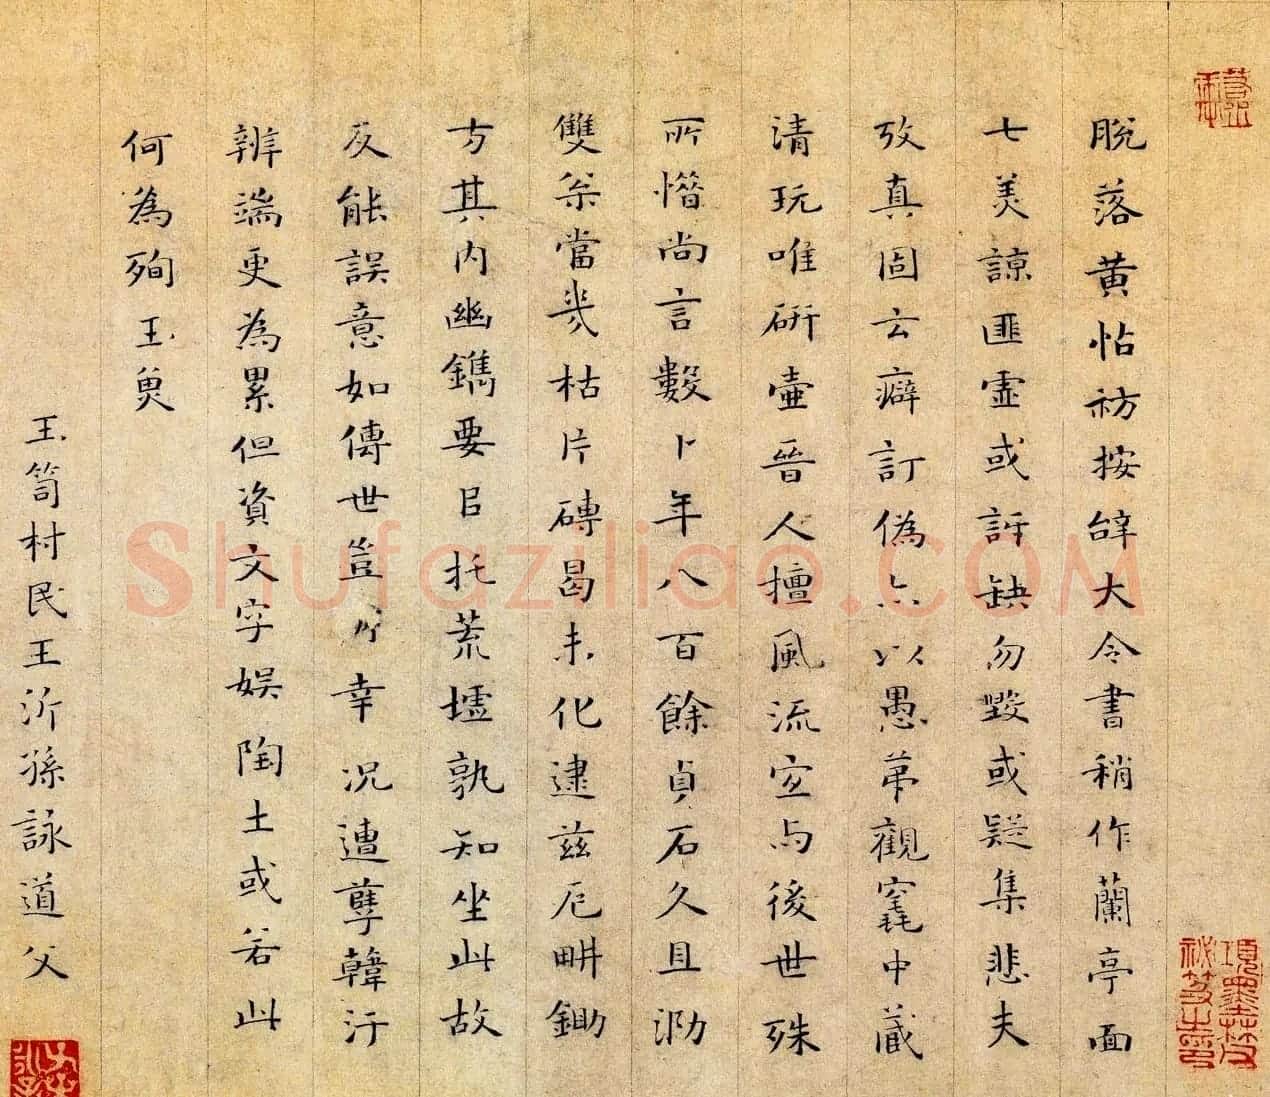 脫落黃帖紡按辝大令書稍作蘭亭面
七美諒匪虛或訝缺勿毀或疑集悲夫
攷真固云癖訂偽亦以愚苐觀窾中蔵
清玩唯硏壷晉人擅風流寔与後世殊
所憯尚言數卜年八百餘貞石久且泐
雙枀當㡬枯片磚曷未化逮兹厄畊鋤
方其内幽鐫要㠯托荒墟孰知坐此故
反能誤意如傳世豈所幸况遭孽韓汙
辨端更為累但資文字娱陶土或若此
何為殉玉臾
玉笥村民王沂孫詠道父
Shufaziliao.COM
項墨林父
祕笈之印